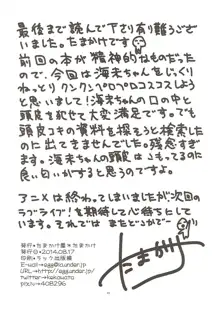 最後まで読んで下さり有り難うござ
いました。たまかけです
前回の本が精神的なものだった
ので、今回は海未ちゃんをじっくり
ねっとりクンクンペロペロコスコスしよう
と思いまして!海未ちゃんの口の中と
頭皮を犯せて大変満足です。でも
頭皮コキの資料を探そうと検索した
のに出てきませんでした。残念すぎ
ます。海未ちゃんの頭皮はこもってるのに
良い匂いがすると思うのですよ。
アニメは終わってしまいましたが次回の
ラブライブ!を期待して心待ちにして
います。それではまたどこかで
たまかけ
発行●たまかけ屋●たまかけ
発行日●2014.08.17
印刷●ラック出版様